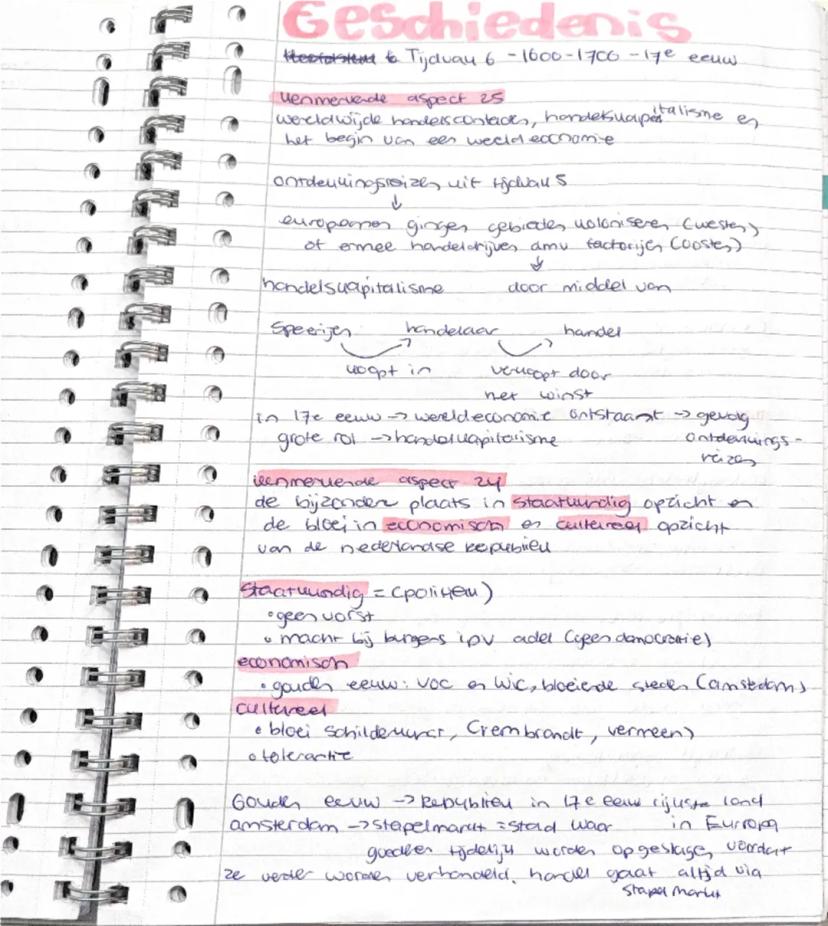 Geschiedenis
Hoofdstuk 6 Tijdvak 6 - 1600-1700 - 17e eeuw
kenmerkende aspect 25
wereldwijde handelscontacten, handelskapitalisme en
het begin van een wereldeconomie
ontdekkingsreizen uit tijdvak 5
↓
europeanen gingen gebieden koloniseren (westen)
of ermee handeldrijven dmv factorijen (oosten)
↓
handelskapitalisme door middel van
Specerijen handelaar handel
koopt in verkoopt door
met winst
in 17e eeuw → wereldeconomie ontstaant → gevolg
grote rol → handelskapitalisme ontdekkings-
reizen
kenmerkende aspect 24
de bijzondere plaats in staatkundig opzicht en
de bloei in economisch en cultureel opzicht
van de nederlandse republiek
Staatkundig = (politiek)
• geen vorst
• macht bij burgers ipv adel (geen democratie)
economisch
• gouden eeuw: VOC en WIC, bloeiende steden (amsterdam)
cultureel
• bloei schilderkunst, (rembrandt, vermeer)
• tolerantie
Gouden eeuw → Republiek in 17e eeuw rijkste land
amsterdam → stapelmarkt = stad waar in Europa
goederen tijdelijk worden opgeslagen voordat
ze verder worden verhandeld. handel gaat altijd via
stapelmarkt